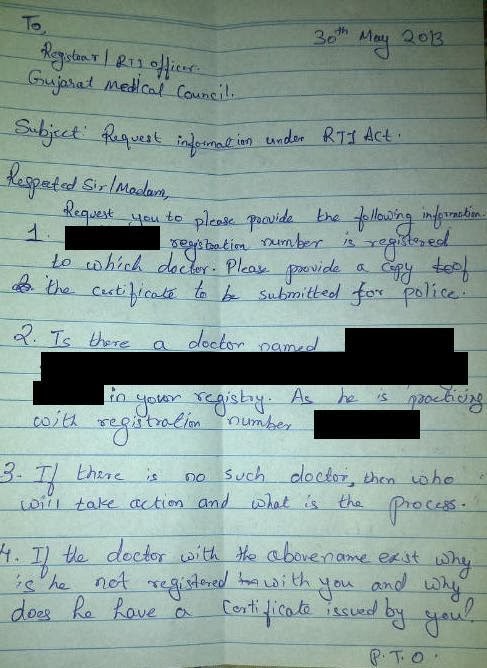 To,
30th May 2013
Registrar/ RTI officer.
Gujarat Medical Council.
Subject: Request information under RTI Act.
Respected Sir/Madam,
Request you to please provide the following information.
1. registration number is registered
to which doctor. Please provide a copy of
the certificate to be submitted for police.
2. Is there a doctor named
in your registry. As he is practicing
with registration number
3. If there is no such doctor, then who
will take action and what is the process.
4. If the doctor with the abovename exist why
is he not registered with you and why
does he have a Certificate issued by you?
P.T.O.